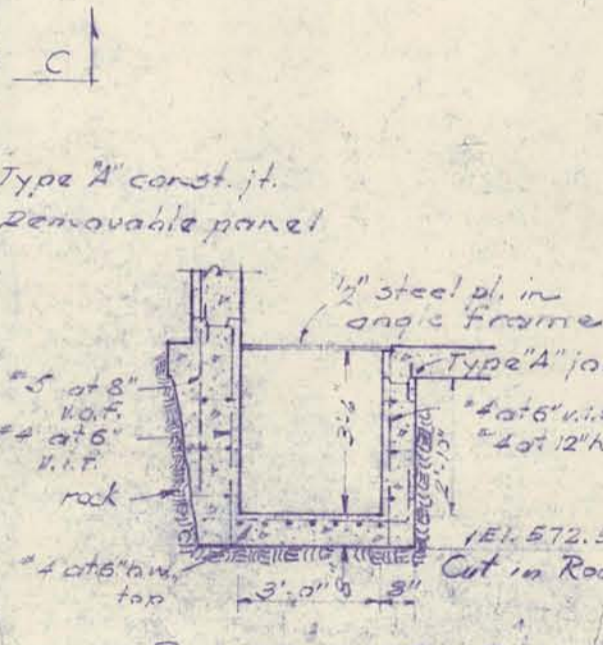 C
Type "A" const. jt.
Removable panel
1/2" steel pl. in
angle frame
Type "A" jo
#5 at 8"
v.o.f.
#4 at 6"
v.i.f.
rock
3'-6"
#4 at 6" v.i.
#4 at 12" h
El. 572.5
Cut in Roc
#4 at 6" h.w.
top
3'-0"
8"
8"